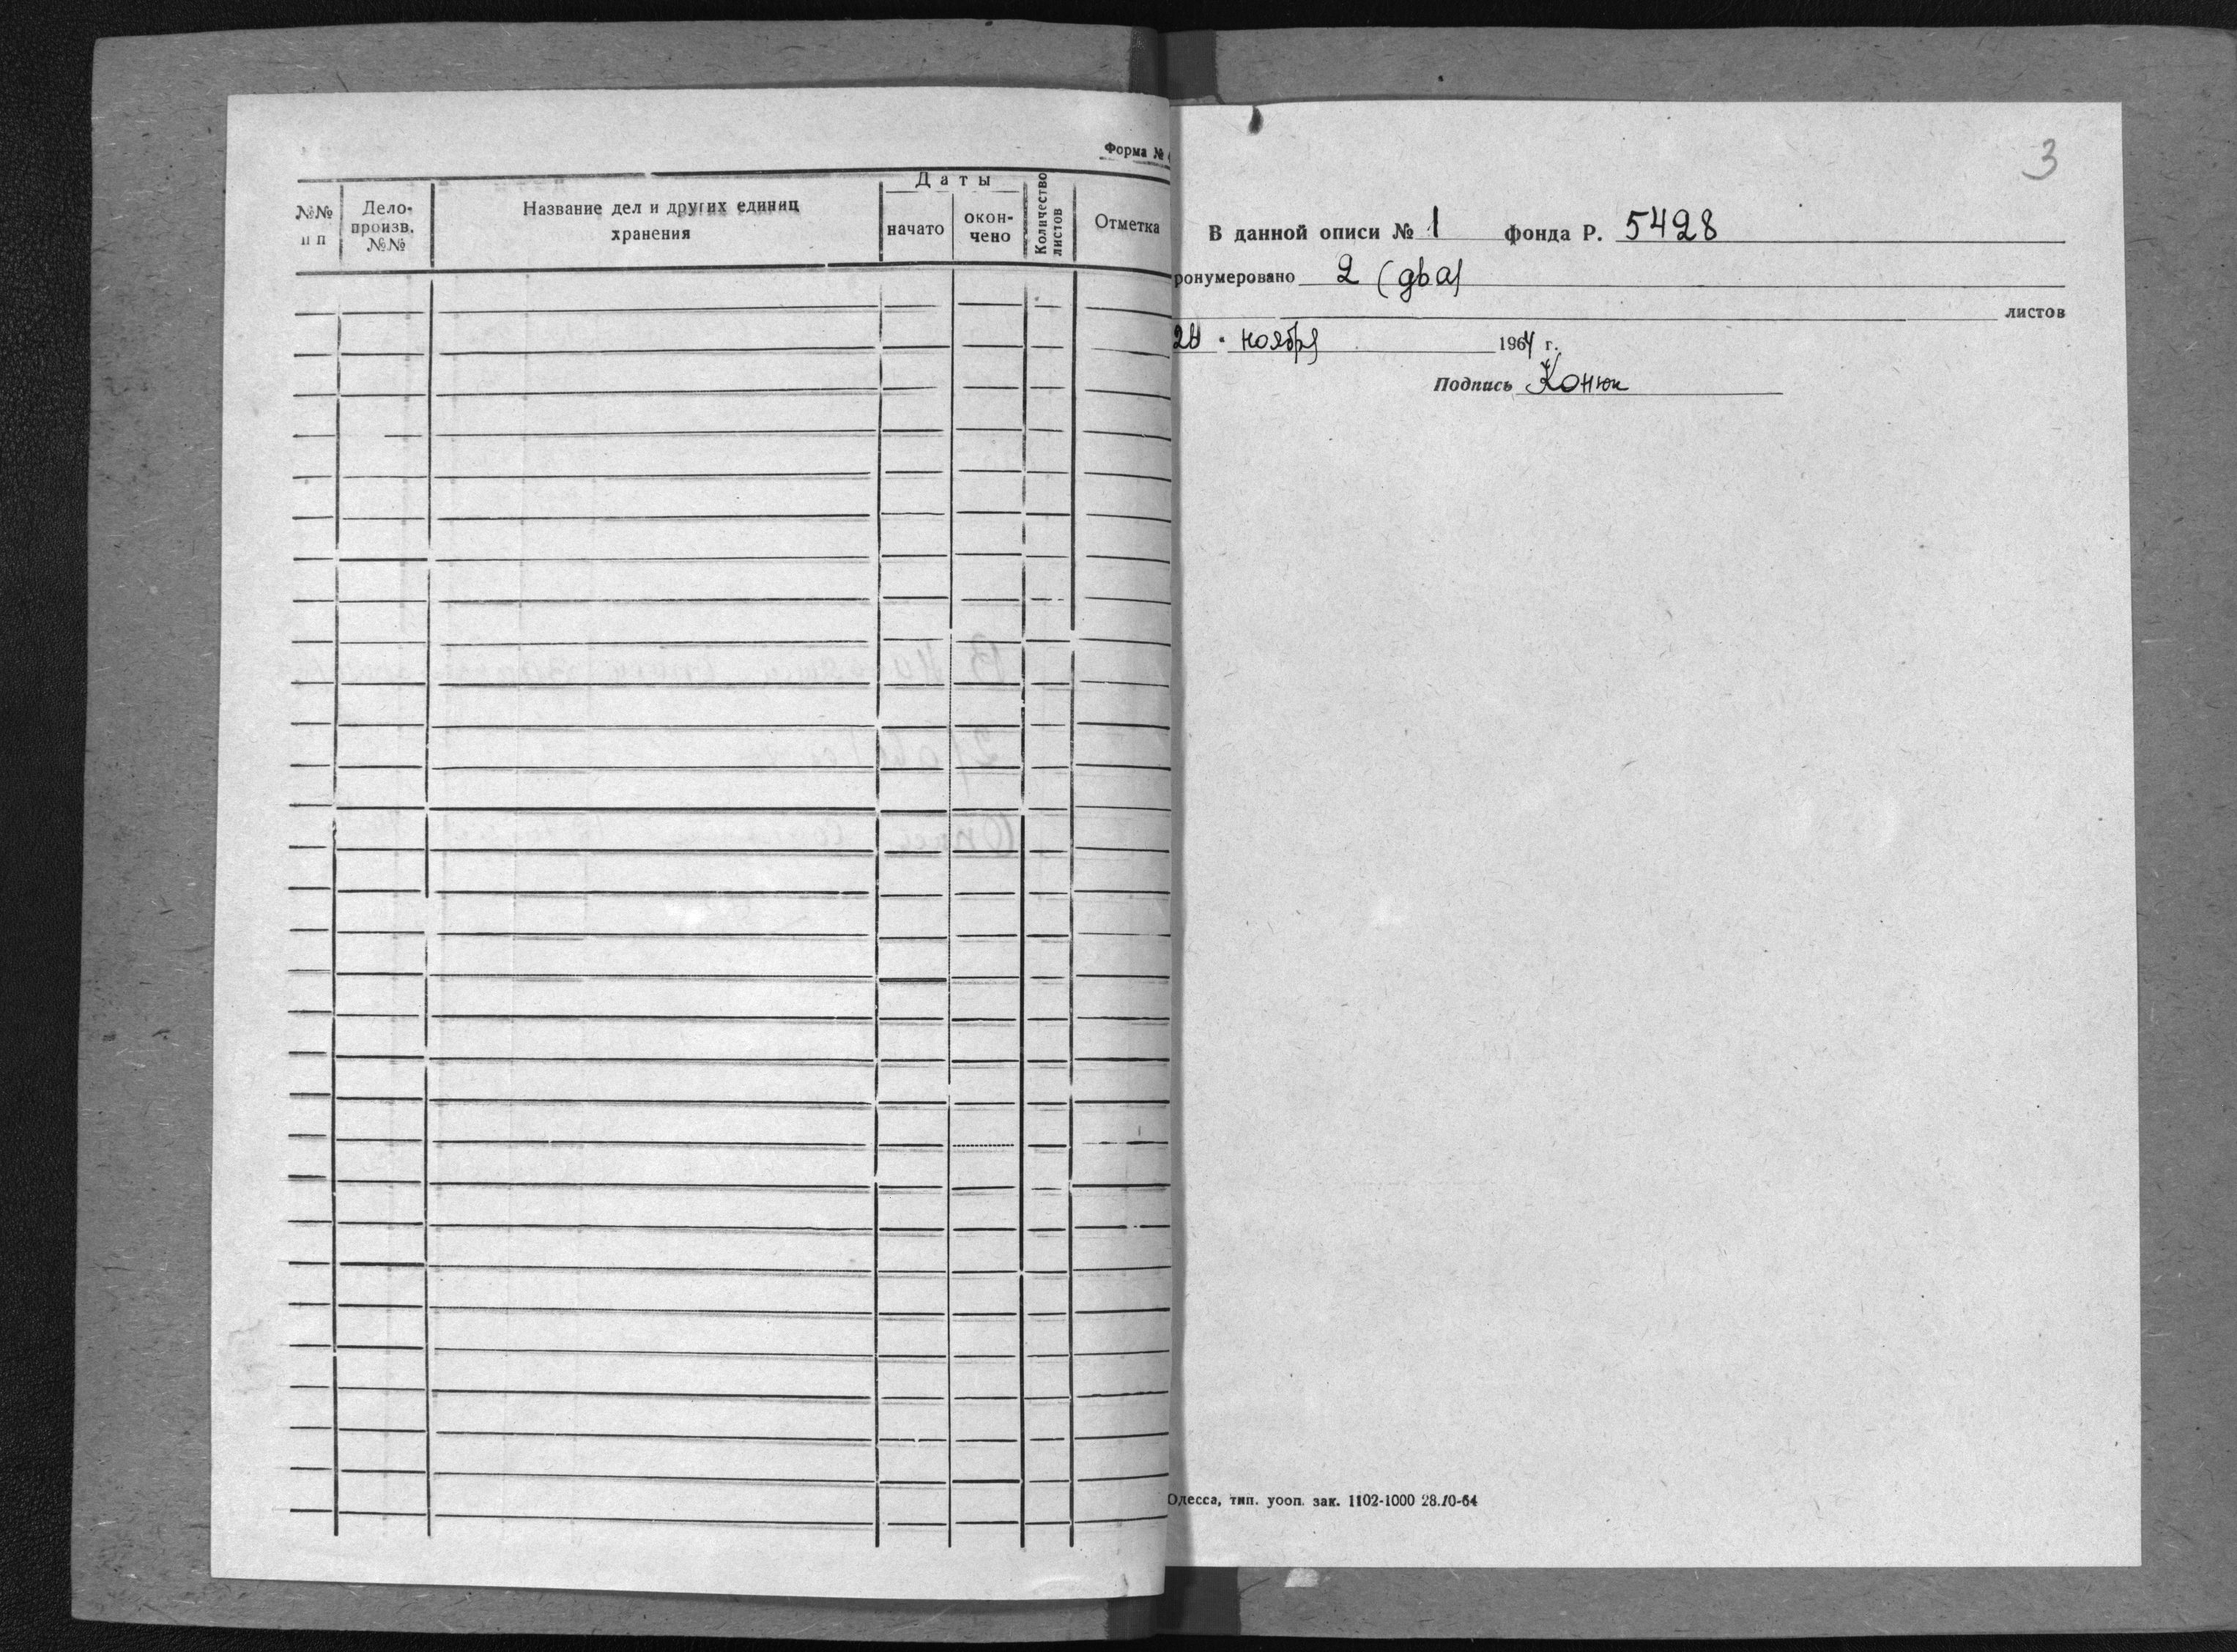 Форма №
№№ п п
Дело-произв. №№
Название дел и других единиц хранения
Даты
начато
окон-чено
Количество листов
Отметка
3
В данной описи № 1 фонда Р. 5428
ронумеровано 2 (два)
листов
ноября 1964 г.
Подпись Конюк
Одесса, тип. уооп. зак. 1102-1000 28.10-64